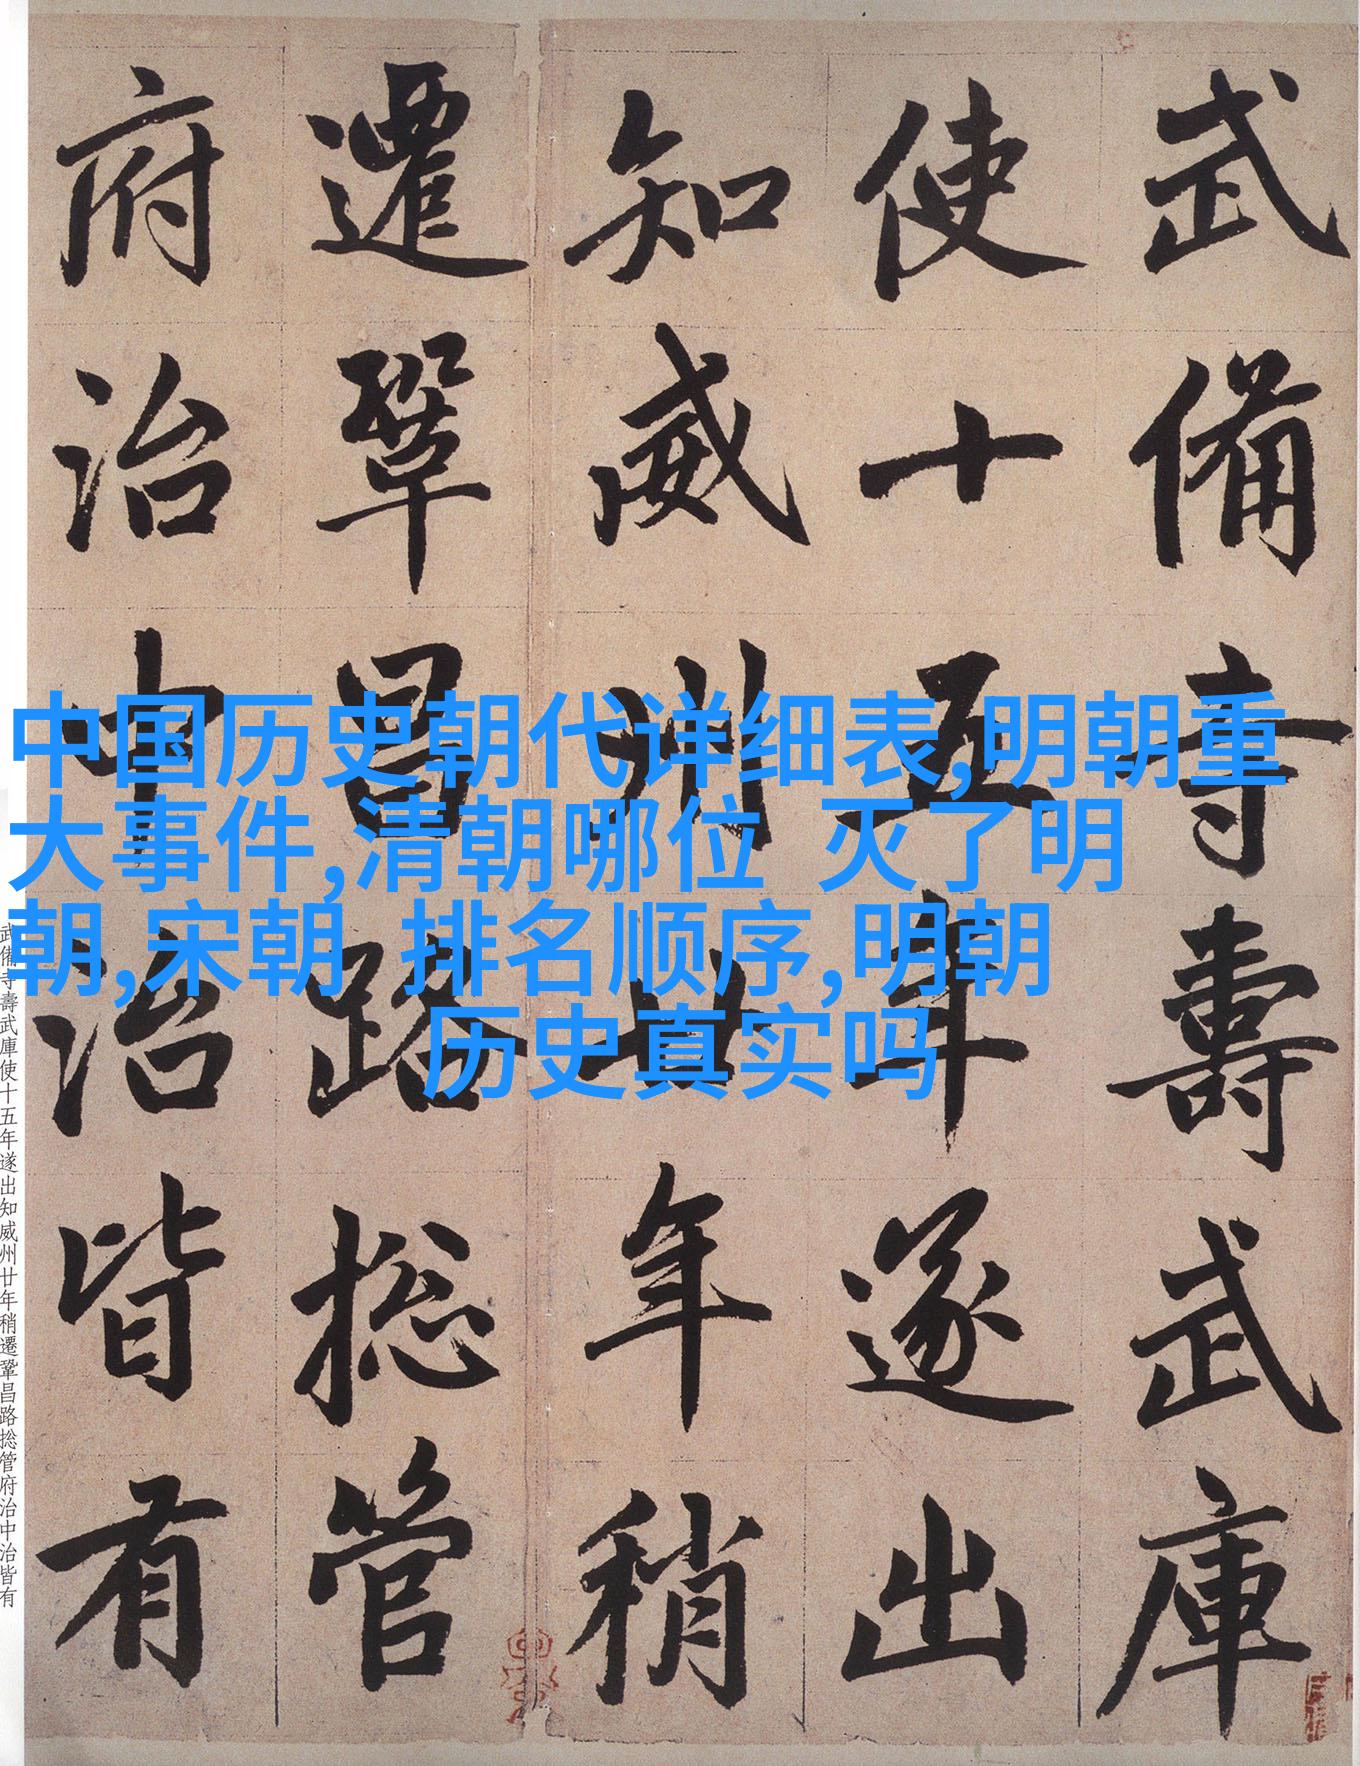 武備寺壽武庫
使十五年遂出
知威州廿年稍
遷鞏昌路捴管
府治中治皆有
中国历史朝代详细表,明朝重
大事件,清朝哪位 灭了明
朝,宋朝 排名顺序,明朝
历史真实吗
武備寺壽武庫使十五年遂出知威州廿年稍遷鞏昌路捴管府治中治皆有